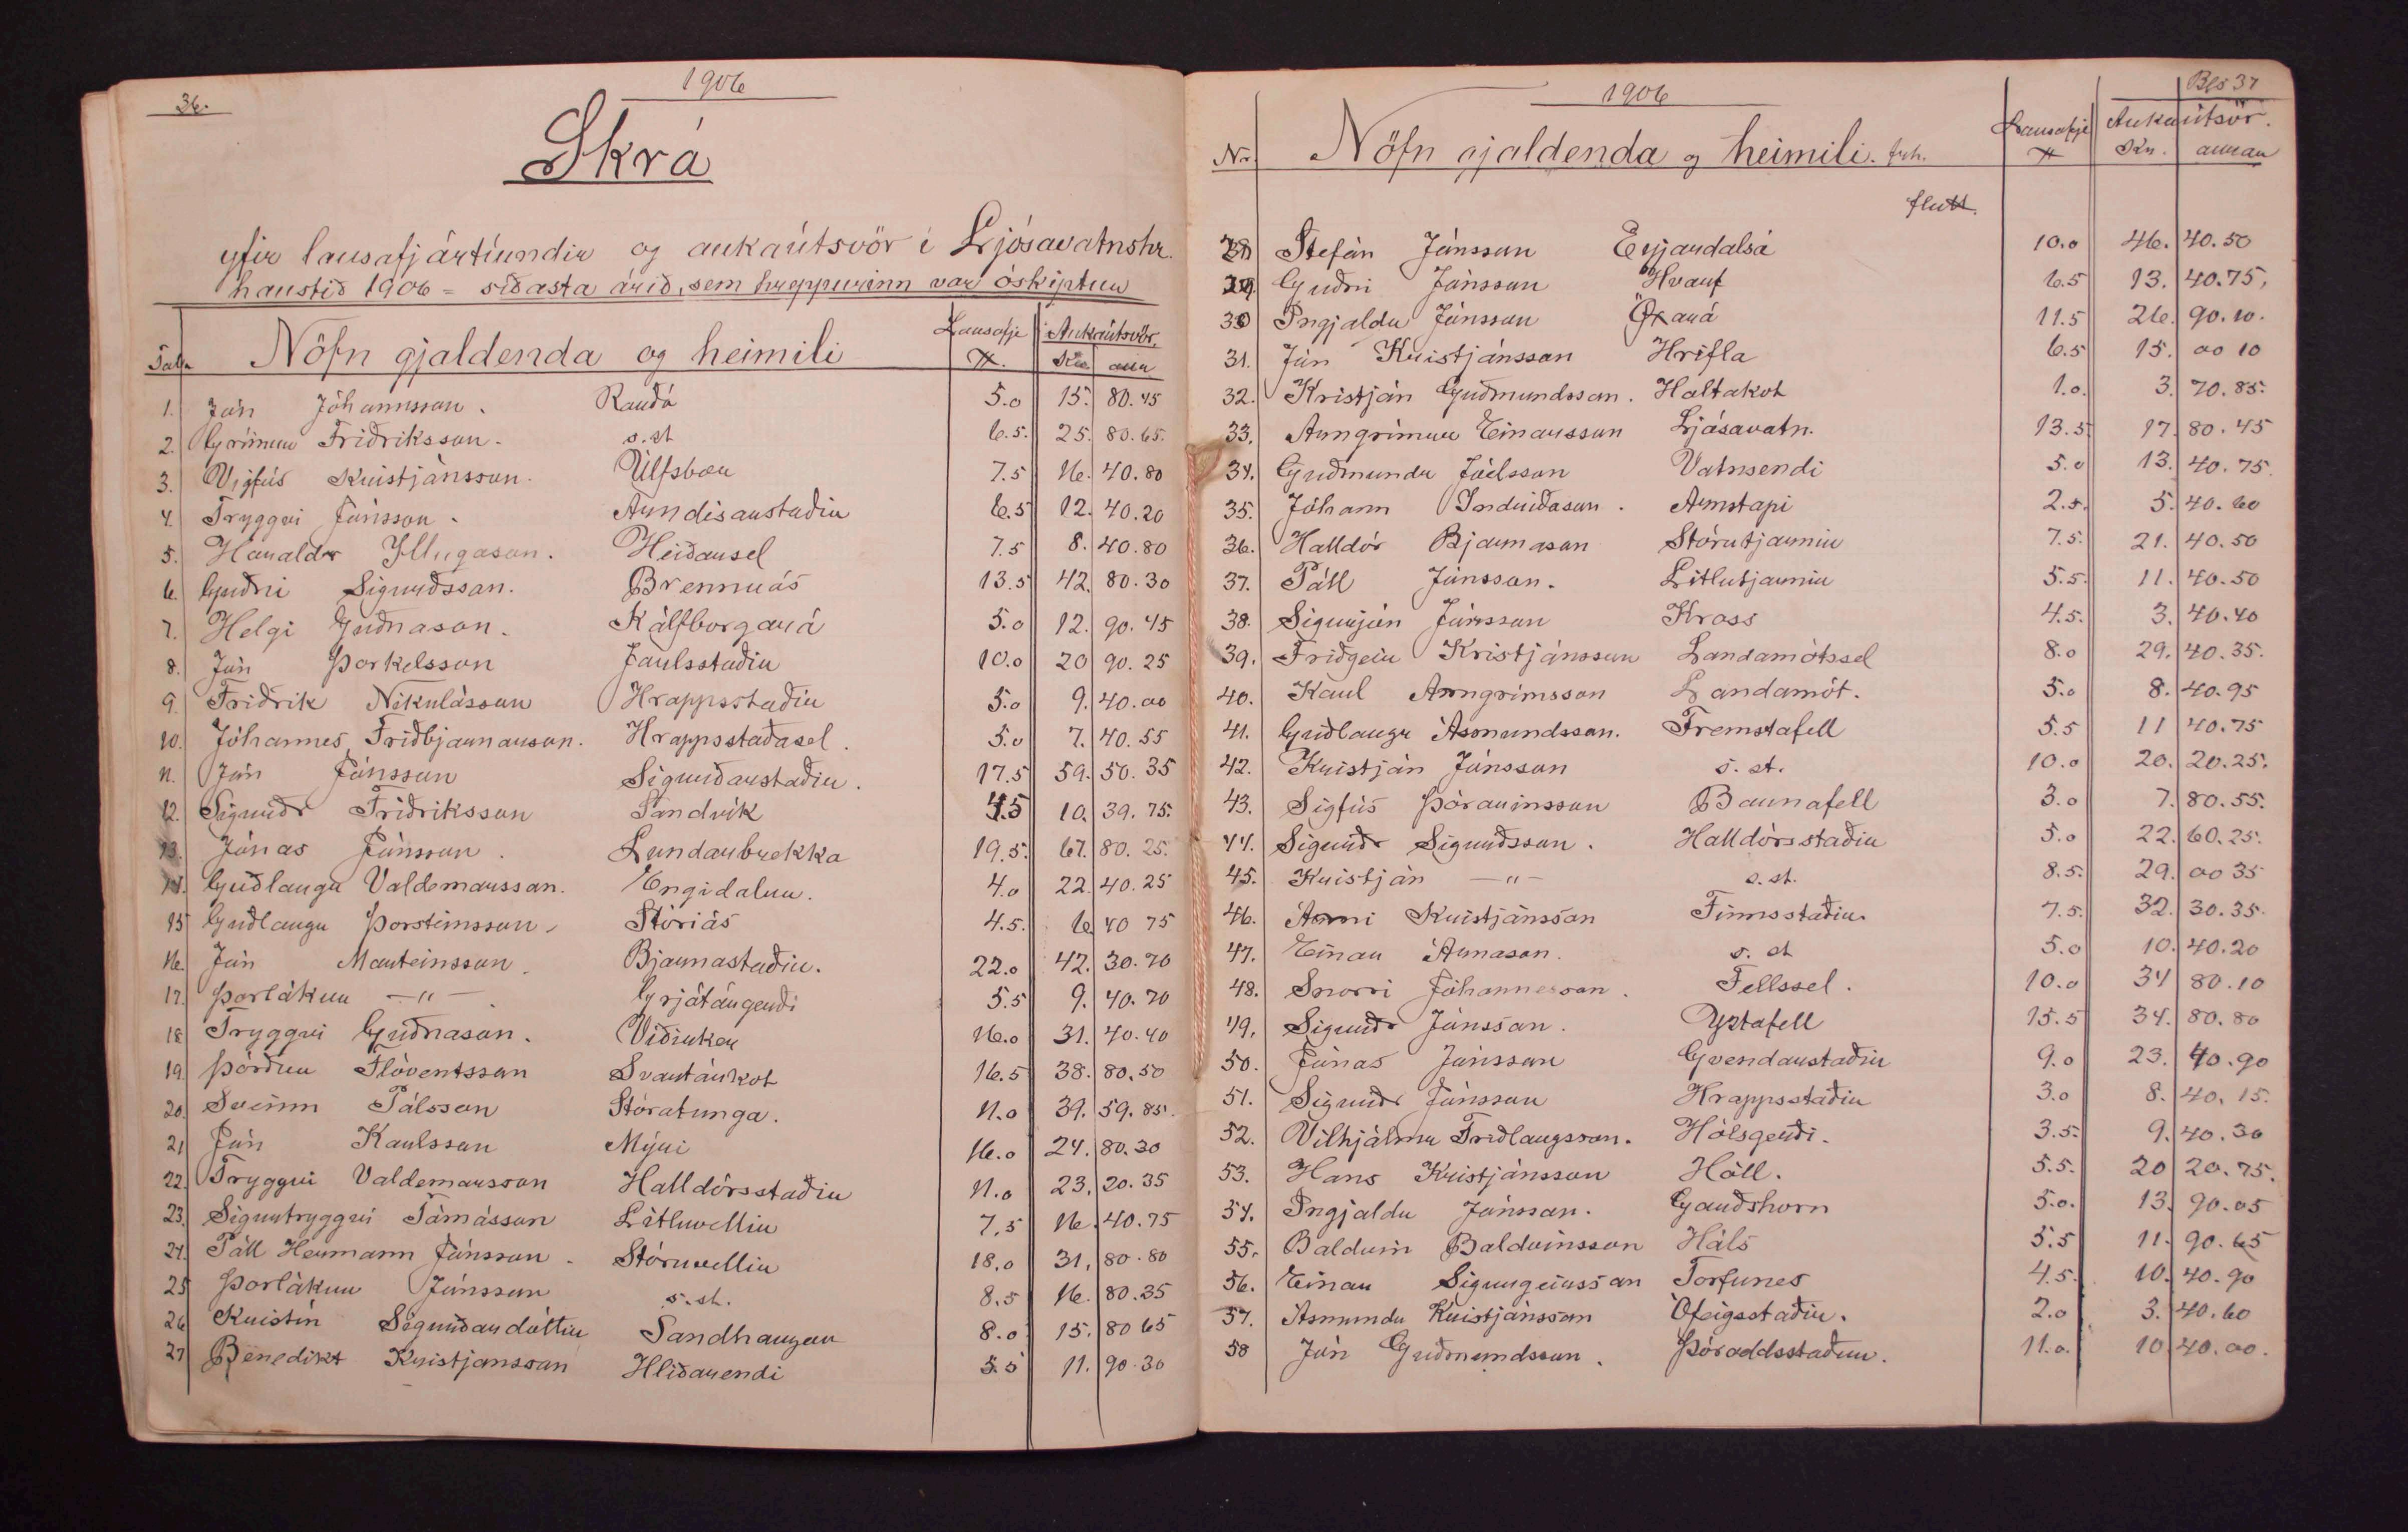 36.
1906
Skrá
yfir lausafjártíundir og aukaútsvör í Ljósavatnshr.
haustið 1906 = síðasta árið, sem hreppurinn var óskiptur
Tala Nöfn gjaldenda og heimili Lausafje Aukaútsvör.
Kr. aur
1. Jón Jóhannsson. Rauðá 5.0 15. 80.45
2. Grímur Friðriksson. s.st 6.5. 25. 80.65.
3. Vigfús Kristjánsson. Úlfsbær 7.5 16. 40.80
4. Tryggvi Jónsson. Arndísarstaðir 6.5 12. 40.20
5. Haraldr Illugason. Heiðarsel 7.5 8. 40.80
6. Guðni Sigurðsson. Brennuás 13.5 42. 80.30
7. Helgi Guðnason. Kálfborgará 5.0 12. 90.45
8. Jón Þorkelsson Jarlsstaðir 10.0 20 90.25
9. Friðrik Nikulásson Hrappsstaðir 5.0 9. 40.00
10. Jóhannes Friðbjarnarson. Hrappsstaðasel. 5.0 7. 40.55
11. Jón Jónsson Sigurðarstaðir. 17.5 59. 50.35
12. Sigurðr Friðriksson Sandvík 4.5 10. 39.75.
13. Jónas Jónsson. Lundarbrekka 19.5. 67. 80.25.
14. Guðlaugr Valdemarsson. Engidalur. 4.0 22. 40.25
15 Guðlaugr Þorsteinsson. Stóriás 4.5. 6. 40 75
16. Jón Marteinsson. Bjarnastaðir. 22.0 42. 30.70
17. Þorlákur —"—. Grjótárgerði 5.5 9. 40.70
18 Tryggvi Guðnason. Víðirker 16.0 31. 40.40
19. Þórður Flóventsson Svartárkot 16.5 38. 80.50
20. Sveinn Pálsson Stóratunga. 11.0 39. 59.85.
21 Jón Karlsson Mýri 16.0 24. 80.30
22. Tryggvi Valdemarsson Halldórsstaðir 11.0 23. 20.35
23. Sigurtryggvi Tómásson Litluvellir 7.5 16. 40.75
24. Páll Hermann Jónsson. Stóruvellir 18.0 31. 80.80
25 Þorlákur Jónsson s.st. 8.5 16. 80.35
26 Kristín Sigurðardóttir Sandhaugar 8.0 15. 80 65
27 Benedikt Kristjansson Hlíðarendi 5.5 11. 90.30
1906
Bls 37
Nr. Nöfn gjaldenda og heimili. frh. Lausafje Aukaútsvör.
Kr. aurar
flutt.
28 Stefán Jónsson Eyjardalsá 10.0 46. 40.50
29. Guðni Jónsson Hvarf 6.5 13. 40.75,
30 Ingjaldr Jónsson Öxará 11.5 26. 90.10.
31. Jón Kristjánsson Hrifla 6.5 15. 00 10
32. Kristján Guðmundsson. Holtakot 1.0. 3. 70.85.
33. Arngrímur Einarsson Ljósavatn. 13.5 17. 80.45
34. Guðmundr Jóelsson Vatnsendi 5.0 13. 40.75.
35. Jóhann Indriðason. Arnstapi 2.5. 5. 40.60
36. Halldór Bjarnason Stórutjarnir 7.5. 21. 40.50
37. Páll Jónsson. Litlutjarnir 5.5. 11. 40.50
38. Sigurjón Jónsson Kross 4.5. 3. 40.40
39. Friðgeir Kristjánsson Landamótssel 8.0 29. 40.35.
40. Karl Arngrímsson Landamót. 5.0 8. 40.95
41. Guðlaugr Ásmundsson. Fremstafell 5.5 11 40.75
42. Kristján Jónsson s. st. 10.0 20. 20.25.
43. Sigfús Þórarinsson Barnafell 3.0 7. 80.55.
44. Sigurðr Sigurðsson. Halldórsstaðir 5.0 22. 60.25.
45. Kristján —"— s. st. 8.5. 29. 00 35
46. Árni Kristjánsson Finnsstaðir. 7.5. 32. 30.35.
47. Einar Árnason. s. st 5.0 10. 40.20
48. Snorri Jóhannesson. Fellssel. 10.0 34 80.10
49. Sigurðr Jónsson. Yztafell 15.5 34. 80.80
50. Jónas Jónsson Gvendarstaðir 9.0 23. 40.90
51. Sigurðr Jónsson Hrappsstaðir 3.0 8. 40.15.
52. Vilhjálmr Friðlaugsson. Hólsgerði. 3.5. 9. 40.30
53. Hans Kristjánsson Hóll. 5.5. 20 20.75.
54. Ingjaldr Jónsson. Garðshorn 5.0. 13. 90.05
55. Balduin Balduinsson Háls 5.5 11. 90.65
56. Einar Sigurgeirsson Torfunes 4.5. 10. 40.90
57. Ásmundr Kristjánsson Ófeigsstaðir. 2.0 3. 40.60
58 Jón Guðmundsson. Þóroddsstaður. 11.0. 10 40.00.